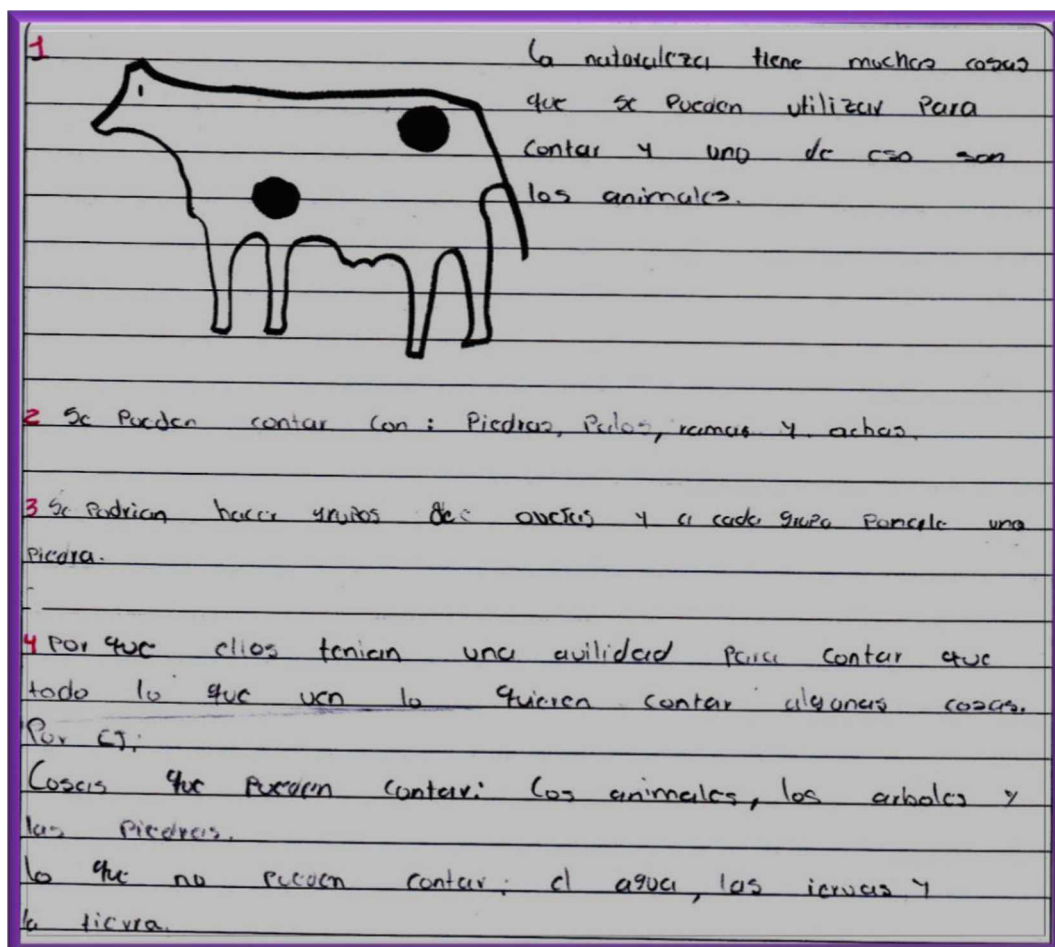 1 La naturaleza tiene muchas cosas
que se pueden utilizar Para
contar y uno de eso son
los animales.
2 Se Pueden contar con : Piedras, Palos, ramas y achas.
3 Se Podrian hacer grupos de ovejas y a cada grupo Poncele una
Piedra.
4 Por que ellos tenian una avilidad para contar que
todo lo que ven lo quieren contar algunas cosas.
Por EJ:
Cosas que pueden contar: los animales, los arboles y
las Piedras.
lo que no pueden contar: el agua, las iervas y
la tierra.